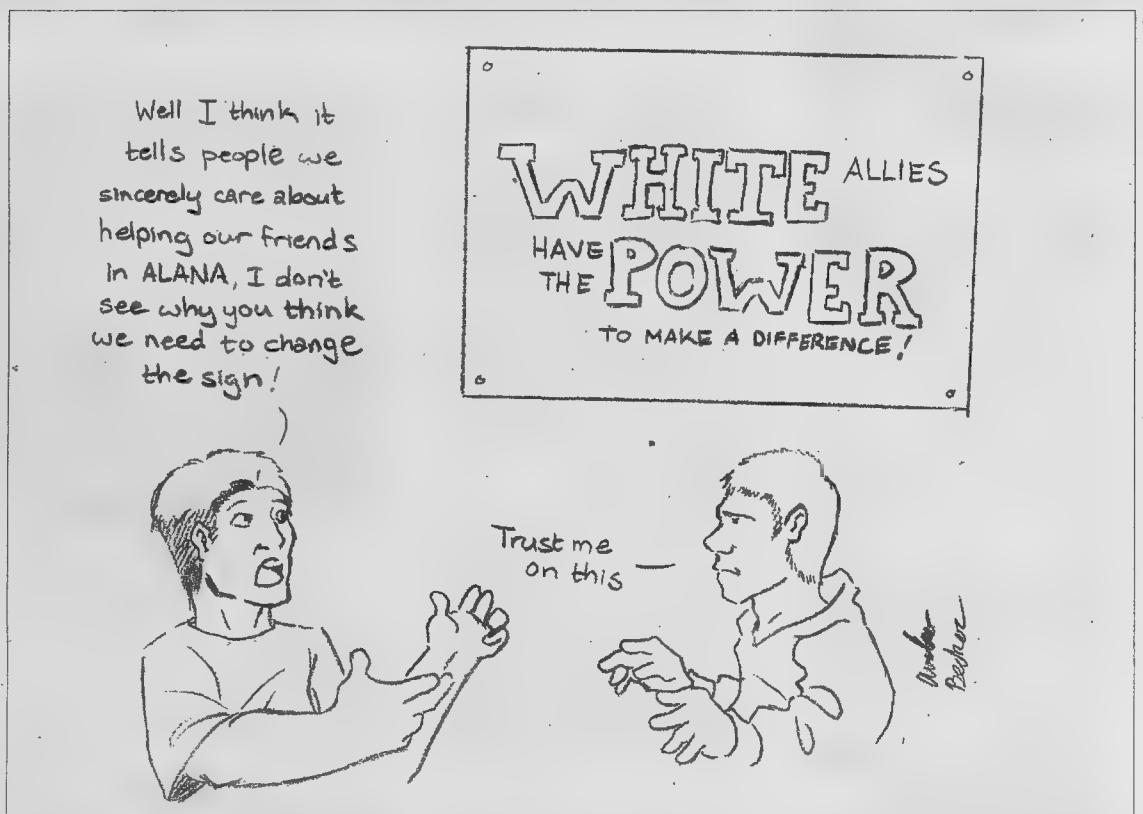 Well I think it
tells people we
sincerely care about
helping our friends
in ALANA, I don't
see why you think
we need to change
the sign!
WHITE ALLIES
HAVE
THE POWER
TO MAKE A DIFFERENCE!
Trust me
on this
Becker